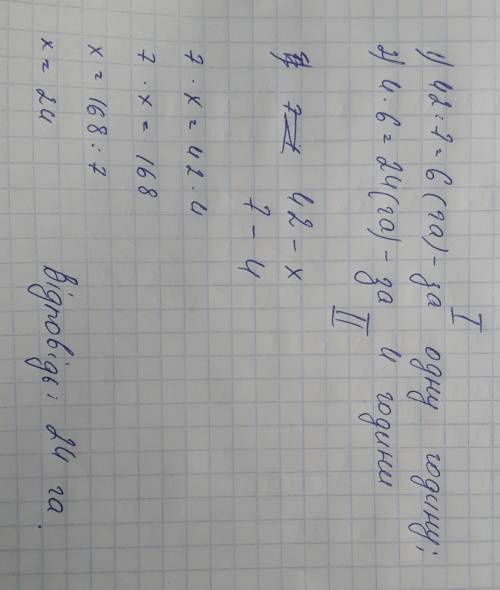 I
1) 42 : 7 = 6 (га) - за одну годину;
2) 4 · 6 = 24 (га) - за 4 години
II
42 - x
7 - 4
7 · x = 42 · 4
7 · x = 168
x = 168 : 7
x = 24
Відповідь: 24 га.